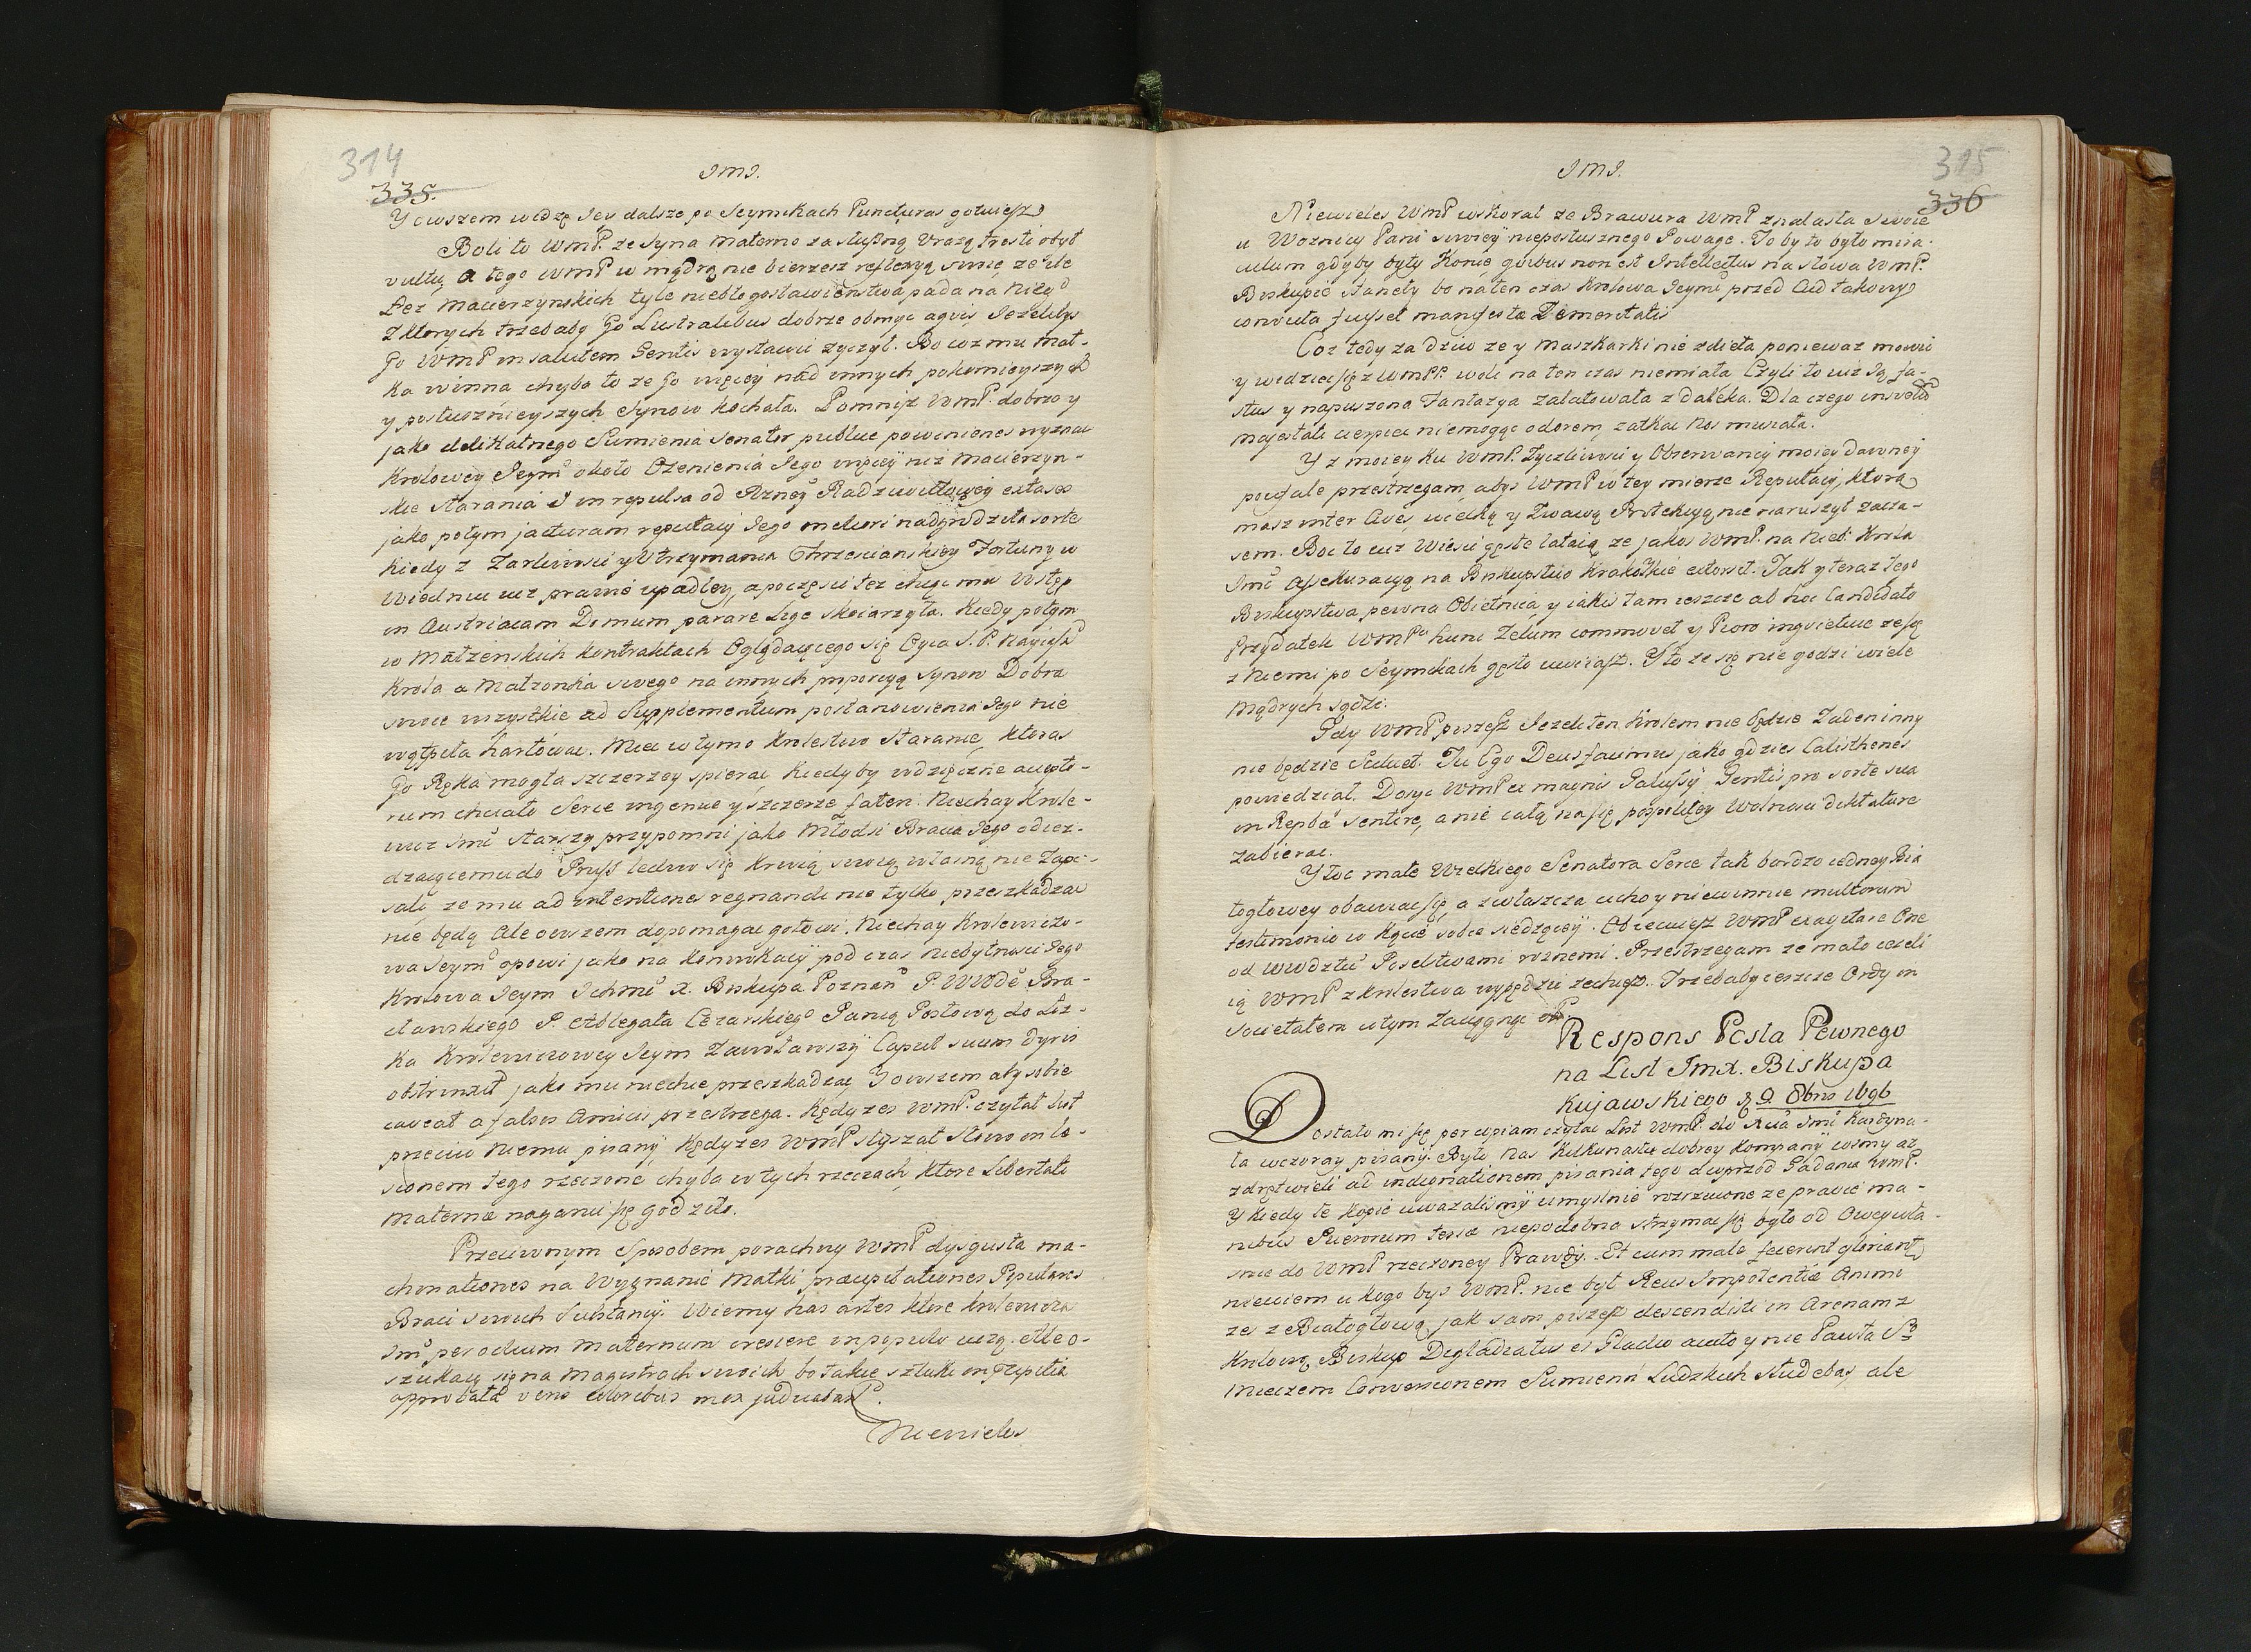 314
JMJ.
335.
Y owszem widzę Jey dalsze po Seymikach Puncturas gotuiesz
Boli to WmP. ze Syna Materno za słuszną Urazą tresti obyt
vultu, a tego WmP w mądrą nie bierzesz reflexyą swoię, ze ile
Łez Macierzynskich tyle niebłogosławienstwa pada na Niego
z ktorych trzeba aby Go Lustralibus dobrze obmyc aquis Jezelibys
Go WmP in salutem Gentis wystawic zyczył. Bo co mu Mat-
ka winna, chyba to ze Go więcey nad innych pokornieyszych
y posłusznieyszych Synow kochała. Pomnisz WmP. dobrze y
jako delikatnego Sumienia Senator publice powinienes wyznac
Krolowey Jeym około Ozenienia Jego więcey niz Macierzyn-
skie starania J in repulsa od Xzney Radziwiłłowey extases
jako potym jacturam reputacij Jego meliori nadgrodziła sorte
kiedy z Zarliwosci y Utrzymania Chrzescianskiey Fortuny w
Wiedniu juz prawie upadłey, a poczęsci tez chcąc mu Wstęp
in Austriacam Domum parare Lige skoiarzyła. Kiedy potym
w Małzenskich kontraktach Oglądaiącego się Oyca S. P. Nayiasz
Krola a Małzonka swego na innych proporcyą Synow Dobra
swoie wszystkie ad Supplementum postanowienia Jego nie
wątpiła hartowac. Miec w tymo Krolestwo Staranie, ktoras
Go Ręka mogła szczerzey spierac, kiedy by wdzięczne acepto-
rum chciało Serce ingenue y szczerze fateri. Niechay Krole-
wicz Jmc starszy przypomni jako Młodsi Bracia Jego odiez-
dzaiącemu do Pruss ledwo się krwią swoią własną nie Zapi-
sali, ze mu ad intentiones regnandi nie tylko przeszkadzac
nie będą Ale owszem dopomagac gotowi. Niechay Krolewiczo-
wa Jeym opowi jako na Konwokacij pod czas niebytnosci Jego
Krolowa Jeym Ichmc X. Biskupa Poznan P. WWde Bra-
cławskiego P. Ablegata Cezarskiego Panią Posłową do Łoz-
ka Krolewiczowey Jeym Zawoławszy Caput suum dyris
obstrinxit jako mu niechce przeszkadzac, Y owszem aby sobie
caveat a falsos Amicis przestrzega. Kędyzes WmP. czytał List
przeciw Niemu pisany, Kędyzes WmP słyszał Słowo in lo-
sionem Jego rzeczone, chyba w tych rzeczach, ktore Libertati
Materna naganic się godziło.
Przeciwnym Sposobem porachuy WmP dysgusta ma-
chinationes na Wygnanie Matki præcipitationes Populares
Braci swoich Substancij. Wiemy has artes ktore Krolewicza
Jmc per odium Maternum crescere in populo uczą. Ale o-
szukaią się na Magistrach swoich bo takie sztuki in Fripilia
approbata vero coloribus mox judicabant.
Niewieles
315
JMJ.
336
Niewieles WmP wskorał ze Brawura WmP znalasła swoie
u Woznicy Pani swoiey nieposłusznego Powagę. To by to było mira-
culum gdyby były Konie quibus non est Intellectus na słowa WmP.
Biskupie staneły bo naten czas Krolowa Jeymc przed Ad takowey
convicta fuisset manifesta Dementatis
Coz tedy za dziw ze y Maszkarki nie zdieła poniewaz mowic
y widziec się z WmPP. woli na ten czas niemiała Czyli to iuz Ją fa-
stus y napuszona Fantazya zalatowała zdaleka. Dla czego insueto
majestati cierpiec niemogąc odorem, zatkac Nos musiała.
Y z moiey ku WmP. Zyczliwosci y Obserwancij moiey dawney
poufale przestrzegam, abys WmP w tey mierze Reputacij, ktorą
masz inter Aves wielką y Zwawą Protekcyą nie naruszył zacza-
sem. Boc to iuz Wiesci gęste lataią, ze jakos WmP. na Nieb: Krola
Jmc Assekuracyą na Biskupstwo Krakowskie extorsit. Tak y teraz tego
Biskupstwa pewna Obietnica y iakis tam ieszcze ab hoc Candidato
Przydatek WmPu hunc Zelum commovet y Pioro inquietuie ze się
z Niemi po Seymikach gęsto uwiiasz. Y to ze się nie godzi wiele
Mądrych sądzi.
Gdy WmP piszesz Jezeli ten Krolem nie będzie Zaden inny
nie będzie Scilicet. Tu Ego Deus faumus, jako gdzies Calisthenes
powiedział. Dosyc WmP ci magnis Palussy Gentis pro sorte sua
in Repba sentire, a nie całą na się pospolitey Wolnosci diktaturę
zabierac.
Y toc małe Wielkiego Senatora Serce tak bardzo iedney Bia
łogłowey obawiac się, a zwłaszcza cicho y niewinnie multorum
testimonio w Kącie sobie siedzącey. Obiecuiesz WmP exagitare One
od WWdztw Poselstwami roznemi. Przestrzegam ze mało iezeli
ią WmP z krolestwa wypędzic zechcesz. Trzebaby ieszcze Ordy in
Societatem w tym Zaciągnąc
Respons Posla Pewnego
na List Jmx. Biskupa
Kujawskiego z 9. 8bris 1696
Dostało mi się per copiam czytac List WmP. do Xcia Jmc Kardyna-
ła wczoray pisany. Było nas kilkunastu dobrey Kompanij ludzmy az
zdrętwieli ad indignationem pisania tego a wprzod Gadania WmP.
Y kiedy te kopie uwazalismy umyslnie rozrzucone ze prawie ma-
nibus Puerorum tersa niepodobna strzymac się było od Oweywła-
snie do WmP rzeczoney Prawdy. Et cum male fecerint gloriant
niewiem u kogo bys WmP. nie był Reus Impotentiæ Animi
ze z Białogłową, jak sam piszesz descendisti in Arenam z
Krolową, Biskup Degladiatus es Gladio acuto y nie Pawła So
Mieczem Conversionem Sumienn Ludzkich Studebas, ale